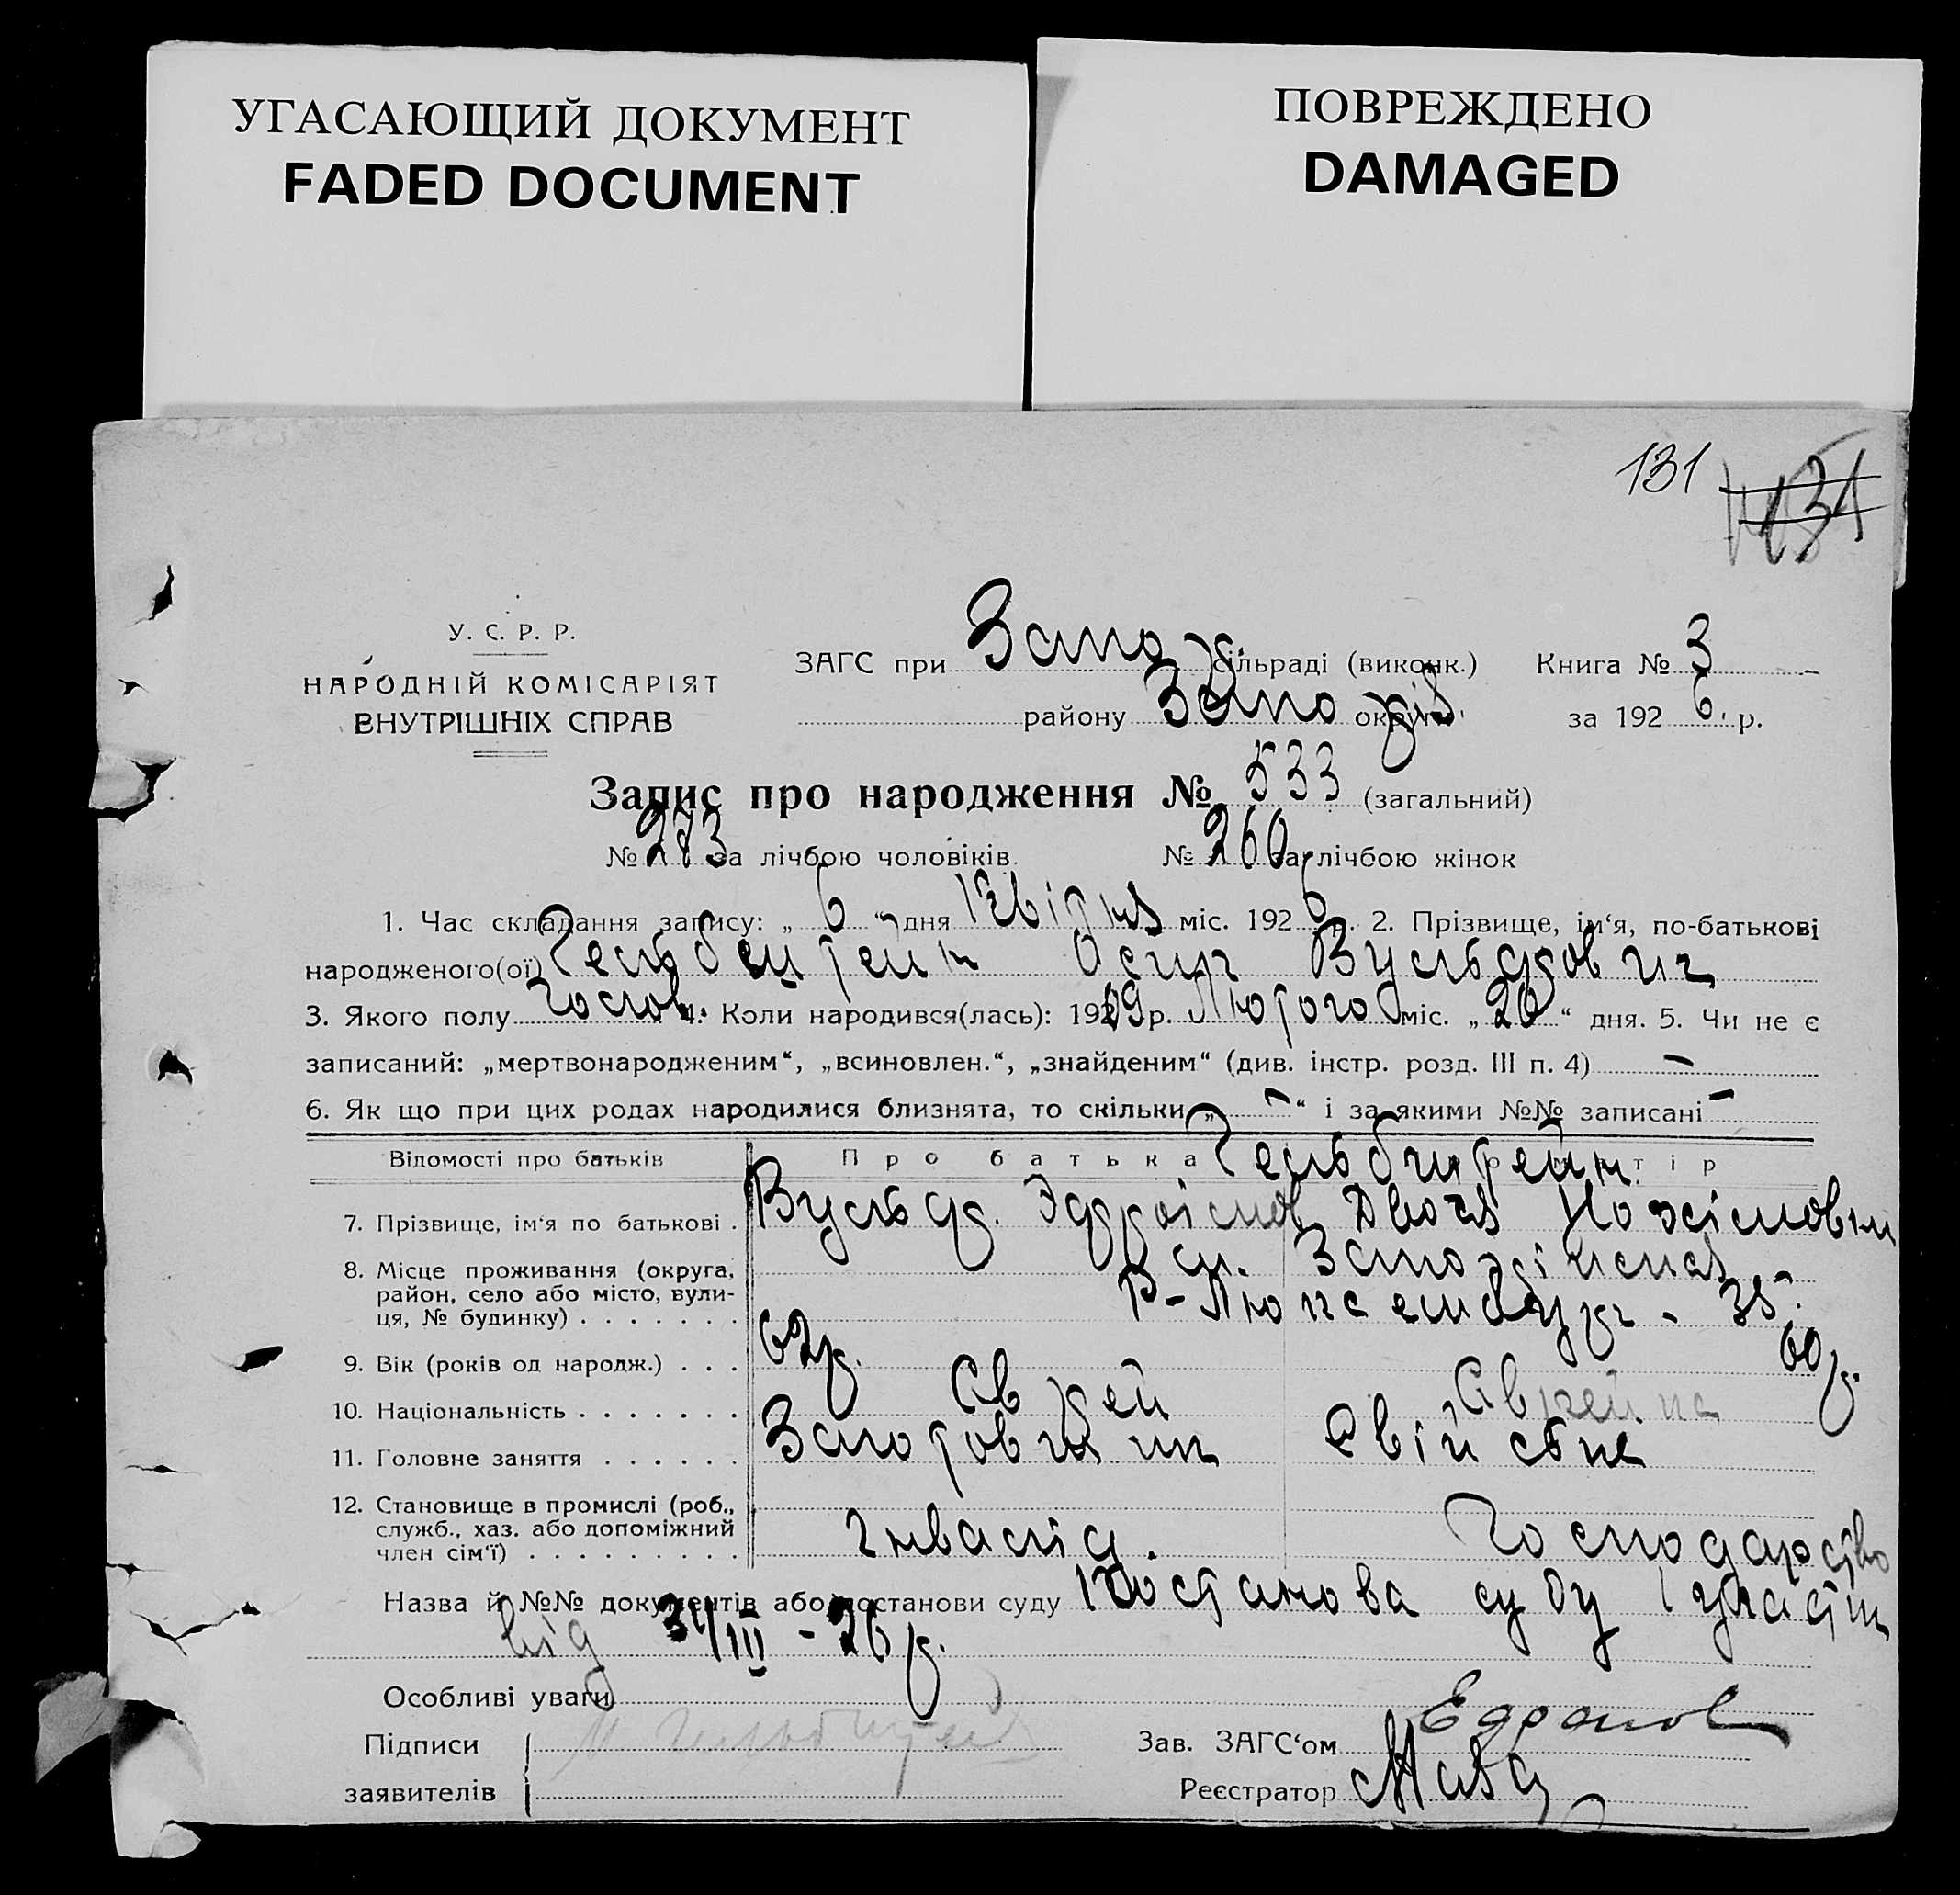 УГАСАЮЩИЙ ДОКУМЕНТ
FADED DOCUMENT
ПОВРЕЖДЕНО
DAMAGED
131
У. С. Р. Р.
НАРОДНІЙ КОМІСАРІЯТ
ВНУТРІШНІХ СПРАВ
ЗАГС при Запор. сільраді (виконк.) Книга № 3
району Запоріз округи за 192 6 р.
Запис про народження № 533 (загальний)
№ 273 за лічбою чоловіків. № 260 за лічбою жінок
1. Час складання запису: „ 6 “ дня Квітня міс. 192 6 р. 2. Прізвище, ім‘я, по-батькові
народженого(ої) Осип Вульфович
3. Якого полу Чолов. 4. Коли народився(лась): 19 р. Лютого міс. „ 20 “ дня. 5. Чи не є
записаний: „мертвонародженим“, „всиновлен.“, „знайденим“ (див. інстр. розд. III п. 4) –
6. Як що при цих родах народилися близнята, то скільки „ – “ і за якими №№ записані –
Відомості про батьків Про батька
7. Прізвище, ім‘я по батькові . Вульф. Двойя
8. Місце проживання (округа, м. Запоріжжя
район, село або місто, вули- Р-Люксембург - 35.
ця, № будинку) . . . . . . .
9. Вік (років од народж.) . . . 62р. 60р.
10. Національність . . . . . . . Єврей Єврейка
11. Головне заняття . . . . . . Заготовщик Свійське
12. Становище в промислі (роб.,
служб., хаз. або допоміжний Інвалід. Господарство
член сім‘ї) . . . . . . . . .
Назва й №№ документів або постанови суду Постанова суду 1 участк
від 31/III - 26 р.
Особливі уваги
Підписи Зав. ЗАГС‘ом
заявителів Реєстратор